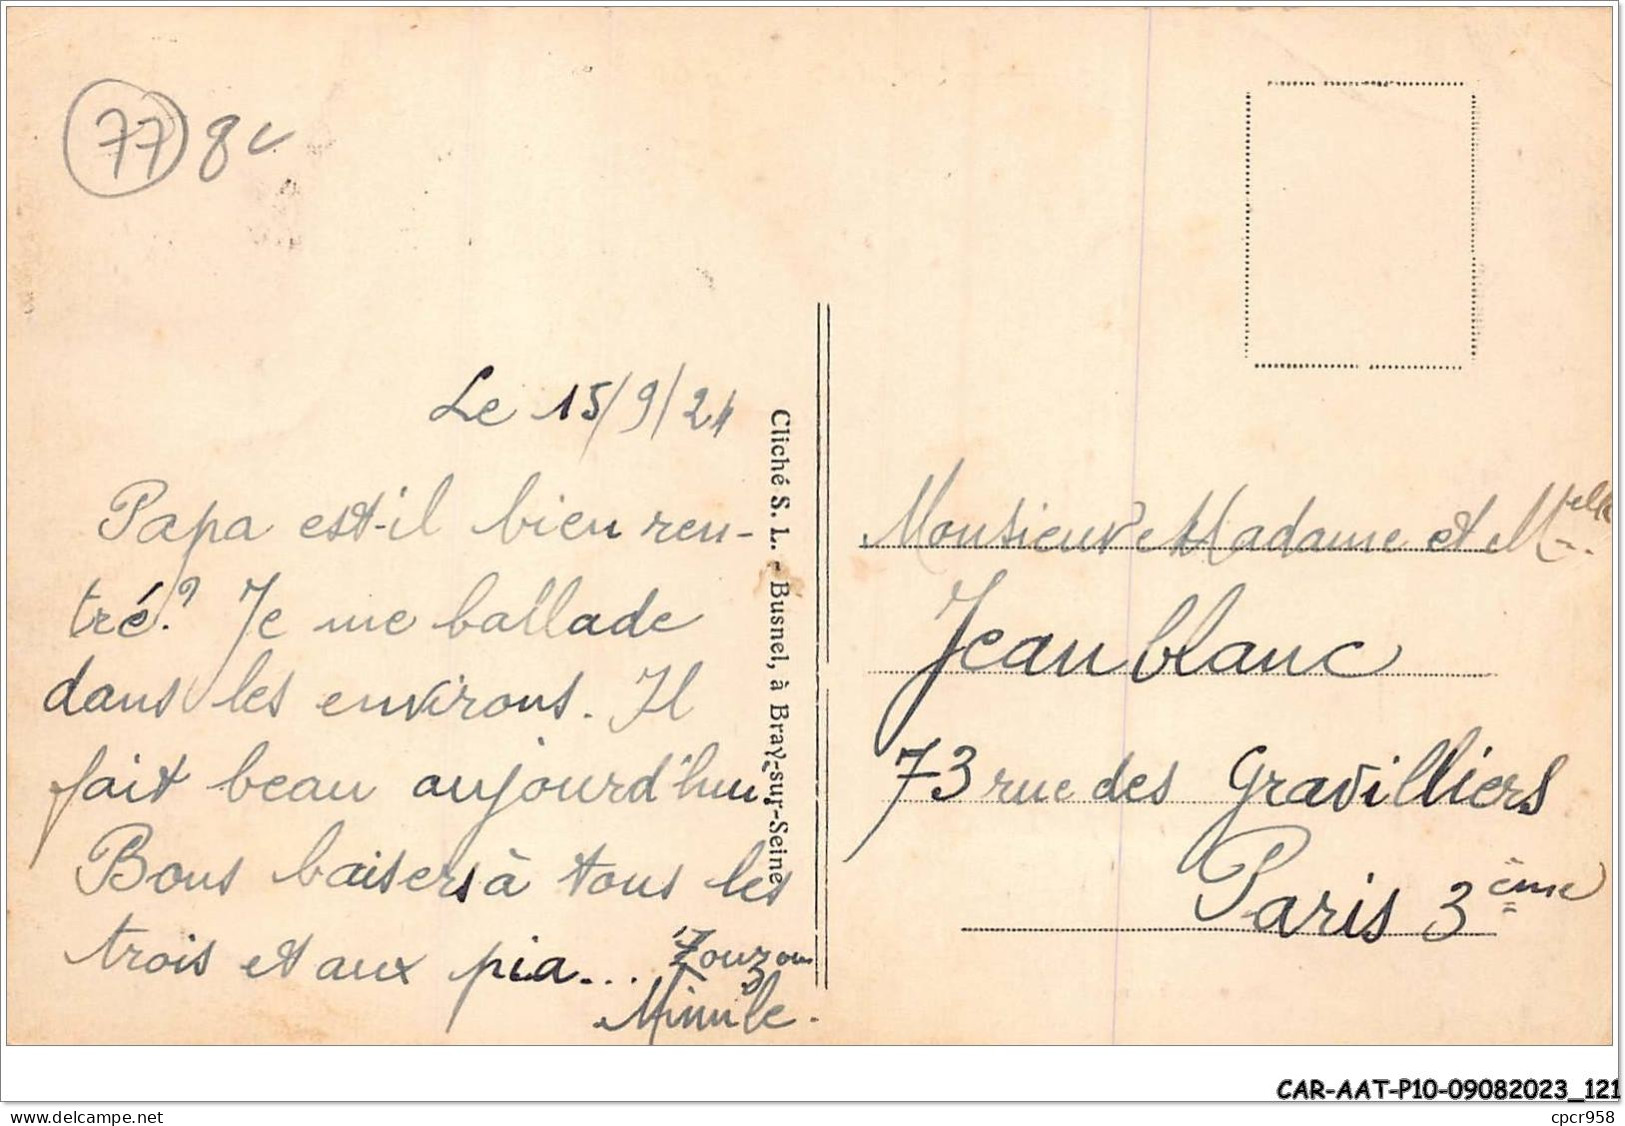 77 8
Le 15/9/21
Papa est-il bien ren-
tré? Je me ballade
dans les environs. Il
fait beau aujourd'hui.
Bons baisers à tous les
trois et aux pia...
Mimile.
Cliché S. L. - Busnel, à Bray-sur-Seine
Monsieur Madame et Melle
Jeanblanc
73 rue des Gravilliers
Paris 3ème
CAR-AAT-P10-09082023_121
https://www.delcampe.net
cpcr958